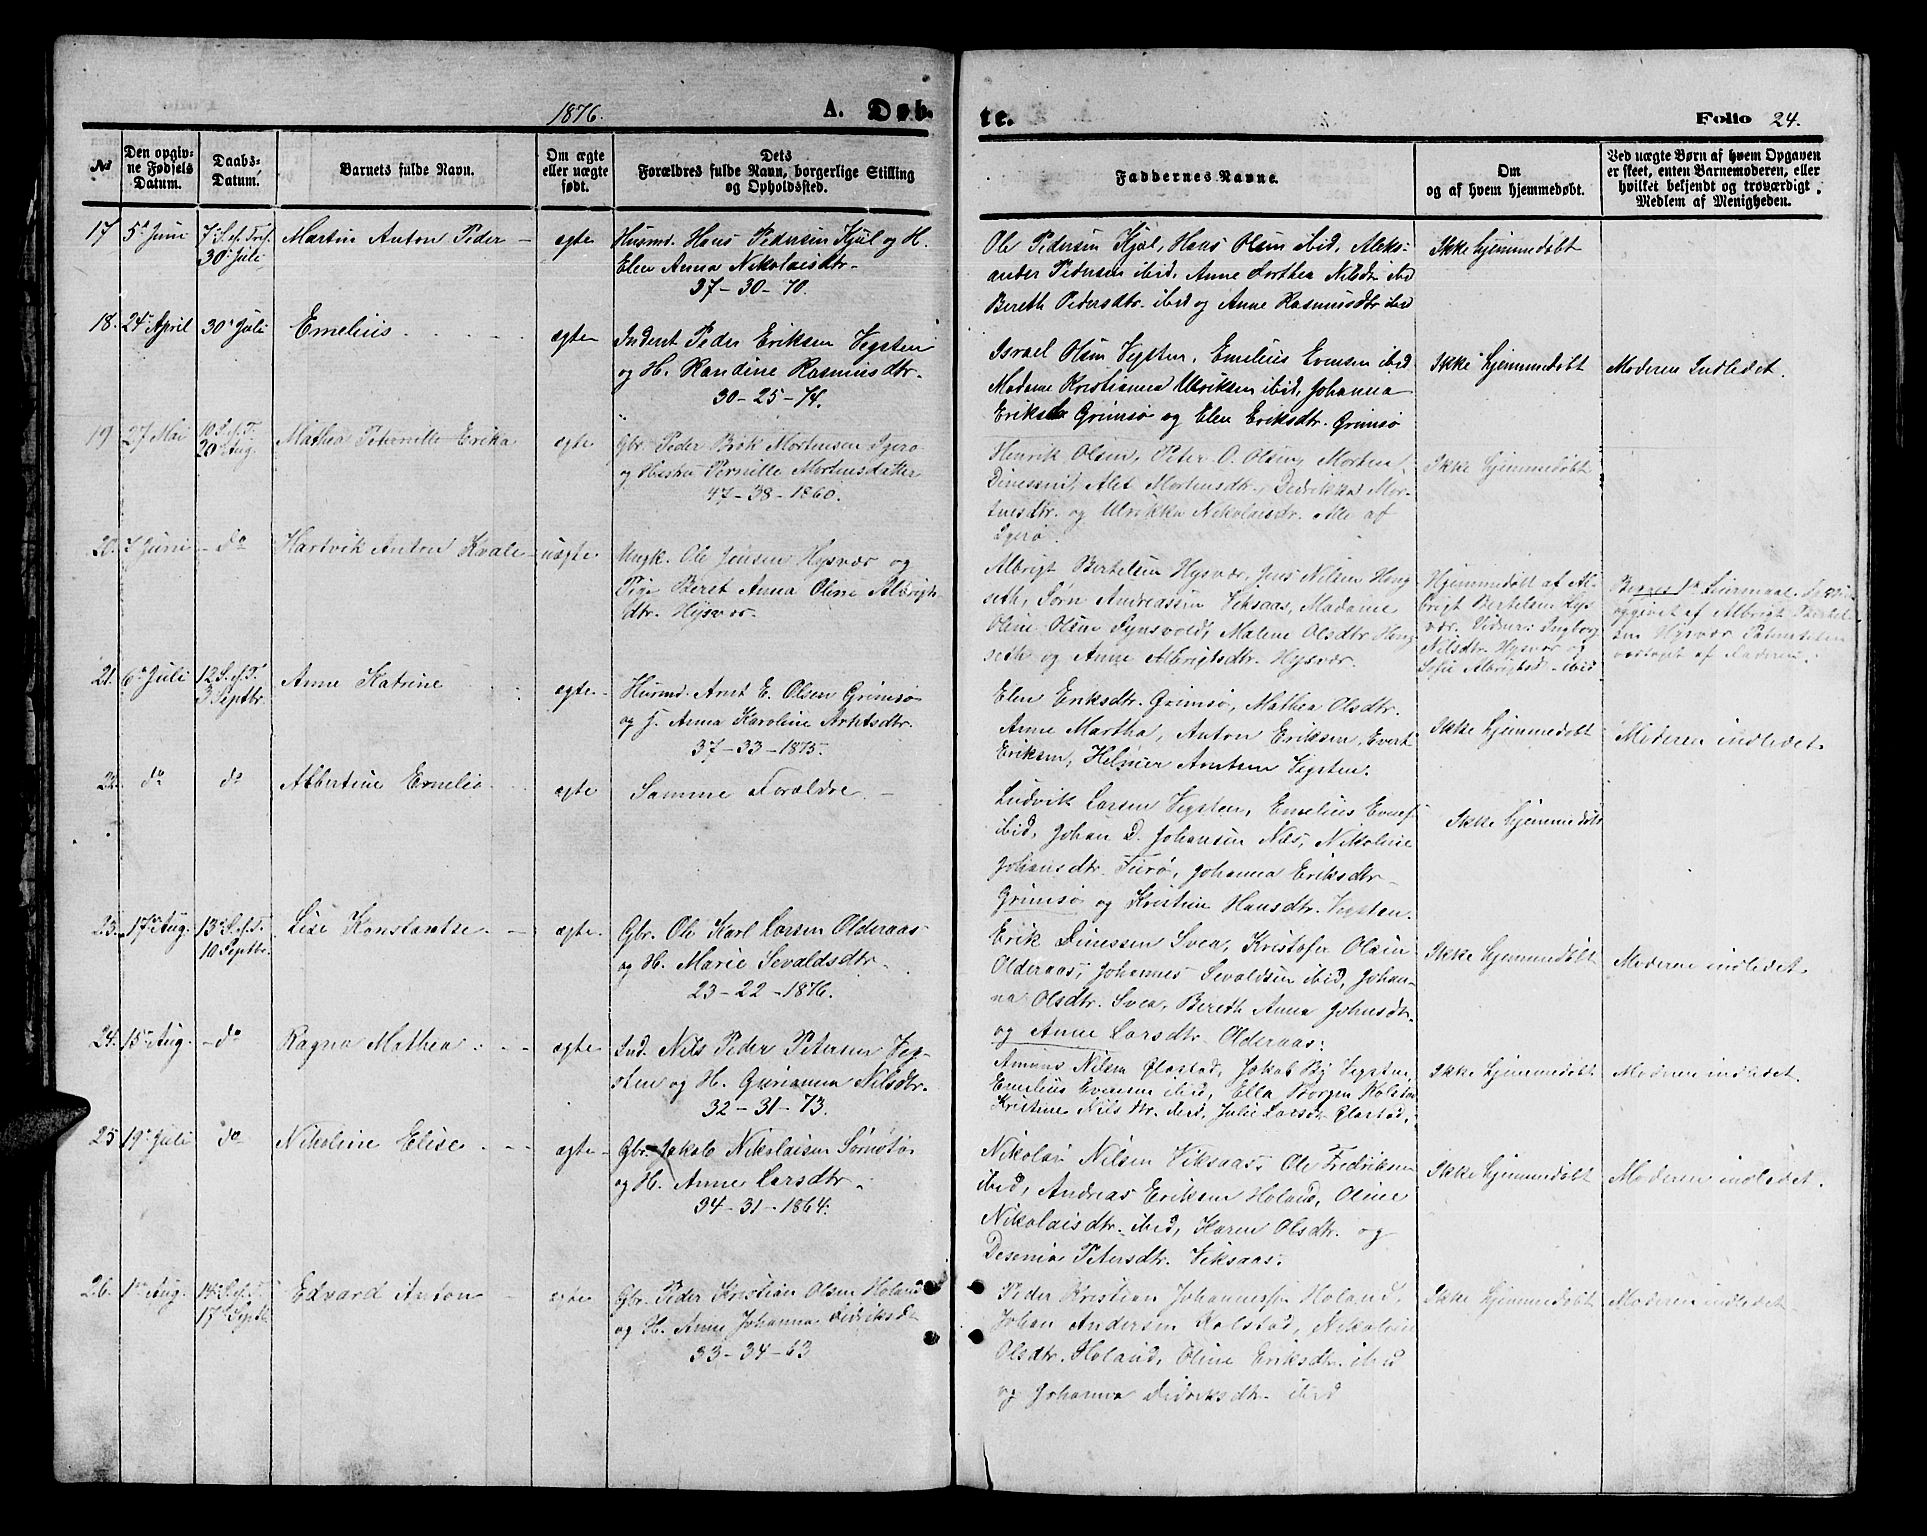 1876. A. Døb-
te. Folio 24.
№
Den opgiv-
ne Fødsels
Datum.
Daabs-
Datum.
Barnets fulde Navn.
Om ægte
eller uægte
født.
Dets
Forældres fulde Navn, borgerlige Stilling
og Opholdssted.
Faddernes Navne.
Om
og af hvem hjemmedøbt.
Ved uægte Børn af hvem Opgaven
er skeet, enten Barnemoderen, eller
hvilket bekjendt og troværdigt
Medlem af Menigheden.
17 5te Juni 7 S. ef. Tref. 30 Juli Martin Anton Peder ægte
Husmd. Hans Pedersen Kjul og H.
Elen Anna Nikolaisdtr.
37-30-70.
Ole Pedersen Kjøl, Hans Olsen ibid, Aleks-
ander Pedersen ibid, Anne Dorthea Nilsdtr ibid
Bereth Pedersdtr. ibid og Anne Rasmusdtr ibid
Ikke hjemmedøbt
18. 24 April 30 Juli Emelius ægte
Inderst Peder Eriksen Vegsten
og H. Randine Rasmusdtr.
30-25-74.
Israel Olsen Vegsten, Emelius Evensen ibid
Madame Kristianna Ulriksen ibid, Johanna
Eriksdtr Grimsø og Elen Eriksdtr. Grimsø
Ikke hjemmedøbt
Moderen Indledet.
19 27 Mai 10 S. ef. T. 20 Aug. Mathea Peternille Erika ægte
Gbr. Peder Bøk Mortensen
og Hustru Pernille Mortensdatter
47-38-1860.
Henrik Olsen, Peter O. Olsen, Morten
Dinessen, Alet Mortensdtr., Dedrikka Mor-
tensdtr. og Ulrikka Nikolaisdr. Alle af
Ikke hjemmedøbt
20. Juni do Hartvik Anton Kvale uægte
Ungk. Ole Jensen Hysvær og
Pige Beret Anna Oline Albrigts-
dtr. Hysvær.
Albrigt Bertelsen Hysvær, Jens Nilsen Heng
seth, Sørn Andreassen Viksaas, Madame
Oline Olsen Tynsvold, Malene Olsdtr Heng
seth og Anne Albrigtsdtr. Hysvær.
Hjemmedøbt af Al-
brigt Bertelsen Hys
vær. Vidner: Ingborg
Nilsdtr. Hysvær og
Sofie Albrigtsd. ibid
Begges 1ste Leiermaal.
opgivet af Albrigt Bertel-
sen Hysvær
vedtaget af Faderen.
21. 6te Juli 12 S. ef. T. 3 Septbr. Anne Katrine ægte
Husmd. Arnt E. Olsen Grimsø
og H. Anna Karoline Arntsdtr.
37-33-1875.
Elen Eriksdtr. Grimsø, Mathea Olsdtr.
Anne Martha, Anton Eriksen, Evert
Eriksen, Helmer Arntsen Vegsten.
Ikke hjemmedøbt
Moderen indledet.
22. do do Albertine Emelie ægte
Samme Forældre
Ludvik Larsen Vegsten, Emelius Evens.
ibid, Johan D. Johansen Næs, Nikoline
Johansdtr. Furø, Johanna Eriksdtr
Grimsø og Kristine Hansdtr. Vegsten.
Ikke hjemmedøbt
23. 17de Aug. 13 S. ef. T. 10 Septbr. Lise Konstantse ægte
Gbr. Ole Karl Larsen Olderaas
og H. Marie Sevaldsdtr
23-22-1876.
Erik Dinessen Svea, Kristofer Olsen
Olderaas, Johannes Sevaldsen ibid, Johan-
na Olsdtr. Svea, Bereth Anna Johnsdtr.
og Anne Larsdtr. Olderaas.
Ikke hjemmedøbt
Moderne indledet.
24. 15de Aug. do Ragna Mathea ægte
Ind. Nils Peder Petersen Veg-
sten og H. Gurianna Nilsdtr.
32-31-73.
Amund Nilsen Olastad, Jakob By Vegsten,
Emelius Evensen ibid, Ella Borgen Kolstad
Kristine Nilsdtr. ibid, Julie Larsdtr Olastad.
Ikke hjemmedøbt
Moderen indledet.
25 19de Juli do Nikoline Elise ægte
Gbr. Jakob Nikolaisen
og H. Anne Larsdtr.
34-31-1864.
Nikolai Nilsen Viksaas, Ole Fredriksen
ibid, Andreas Eriksen Holand, Oline
Nikolaisdtr. ibid, Karen Olsdtr. og
Desenia Petersdtr. Viksaas.
Ikke hjemmedøbt
Moderen indledet.
26. 1ste Aug. 14 S. ef. T. 17 Septbr Edvard Anton ægte
Gbr. Peder Kristian Olsen Holand
og H. Anne Johanna Didriksdr
33-34-63
Peder Kristian Johannessen Holand,
Johan Andersen Kolstad, Nikoline
Olsdtr. Holand, Oline Eriksdtr. ibid
og Johanna Didriksdtr. ibid
Ikke hjemmedøbt
Moderen indledet